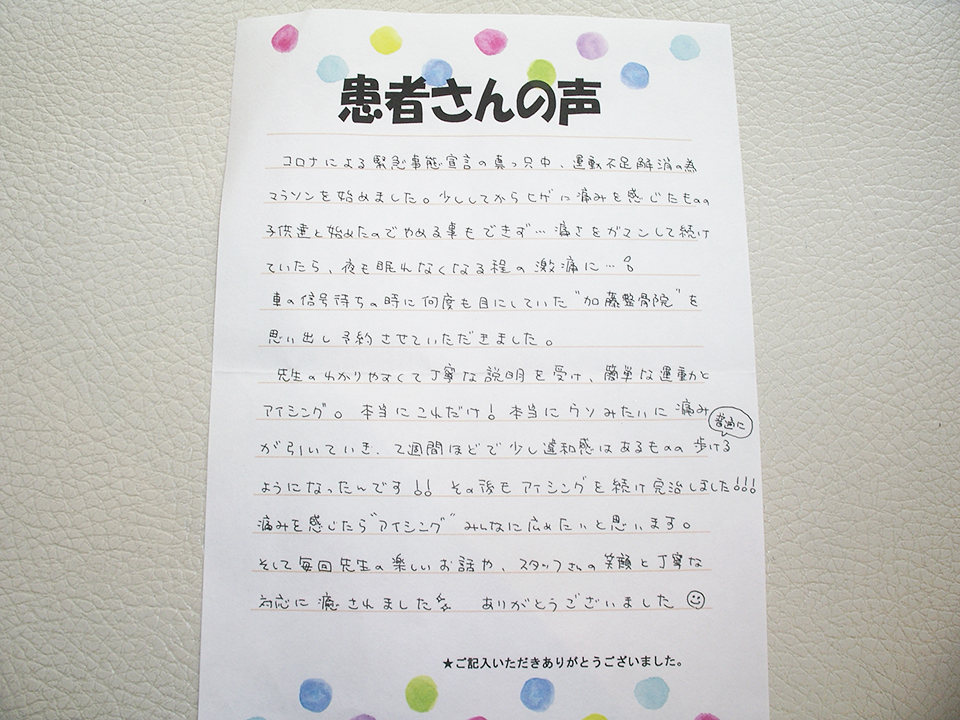 患者さんの声
コロナによる緊急事態宣言の真っ只中、運動不足解消の為
マラソンを始めました。少ししてからヒザに痛みを感じたものの
子供達と始めたのでやめる事もできず…痛さをガマンして続け
ていたら、夜も眠れなくなる程の激痛に…
車の信号待ちの時に何度も目にしていた"加藤整骨院"を
思い出し予約させていただきました。
先生のわかりやすくて丁寧な説明を受け、簡単な運動と
アイシング。本当にこれだけ!本当にウソみたいに痛み
が引いていき、2週間ほどで少し違和感はあるものの普通に歩ける
ようになったんです!!その後もアイシングを続け完治しました!!!
痛みを感じたら"アイシング"みんなに広めたいと思います。
そして毎回先生の楽しいお話や、スタッフさんの笑顔と丁寧な
対応に癒されました ありがとうございました
★ご記入いただきありがとうございました。